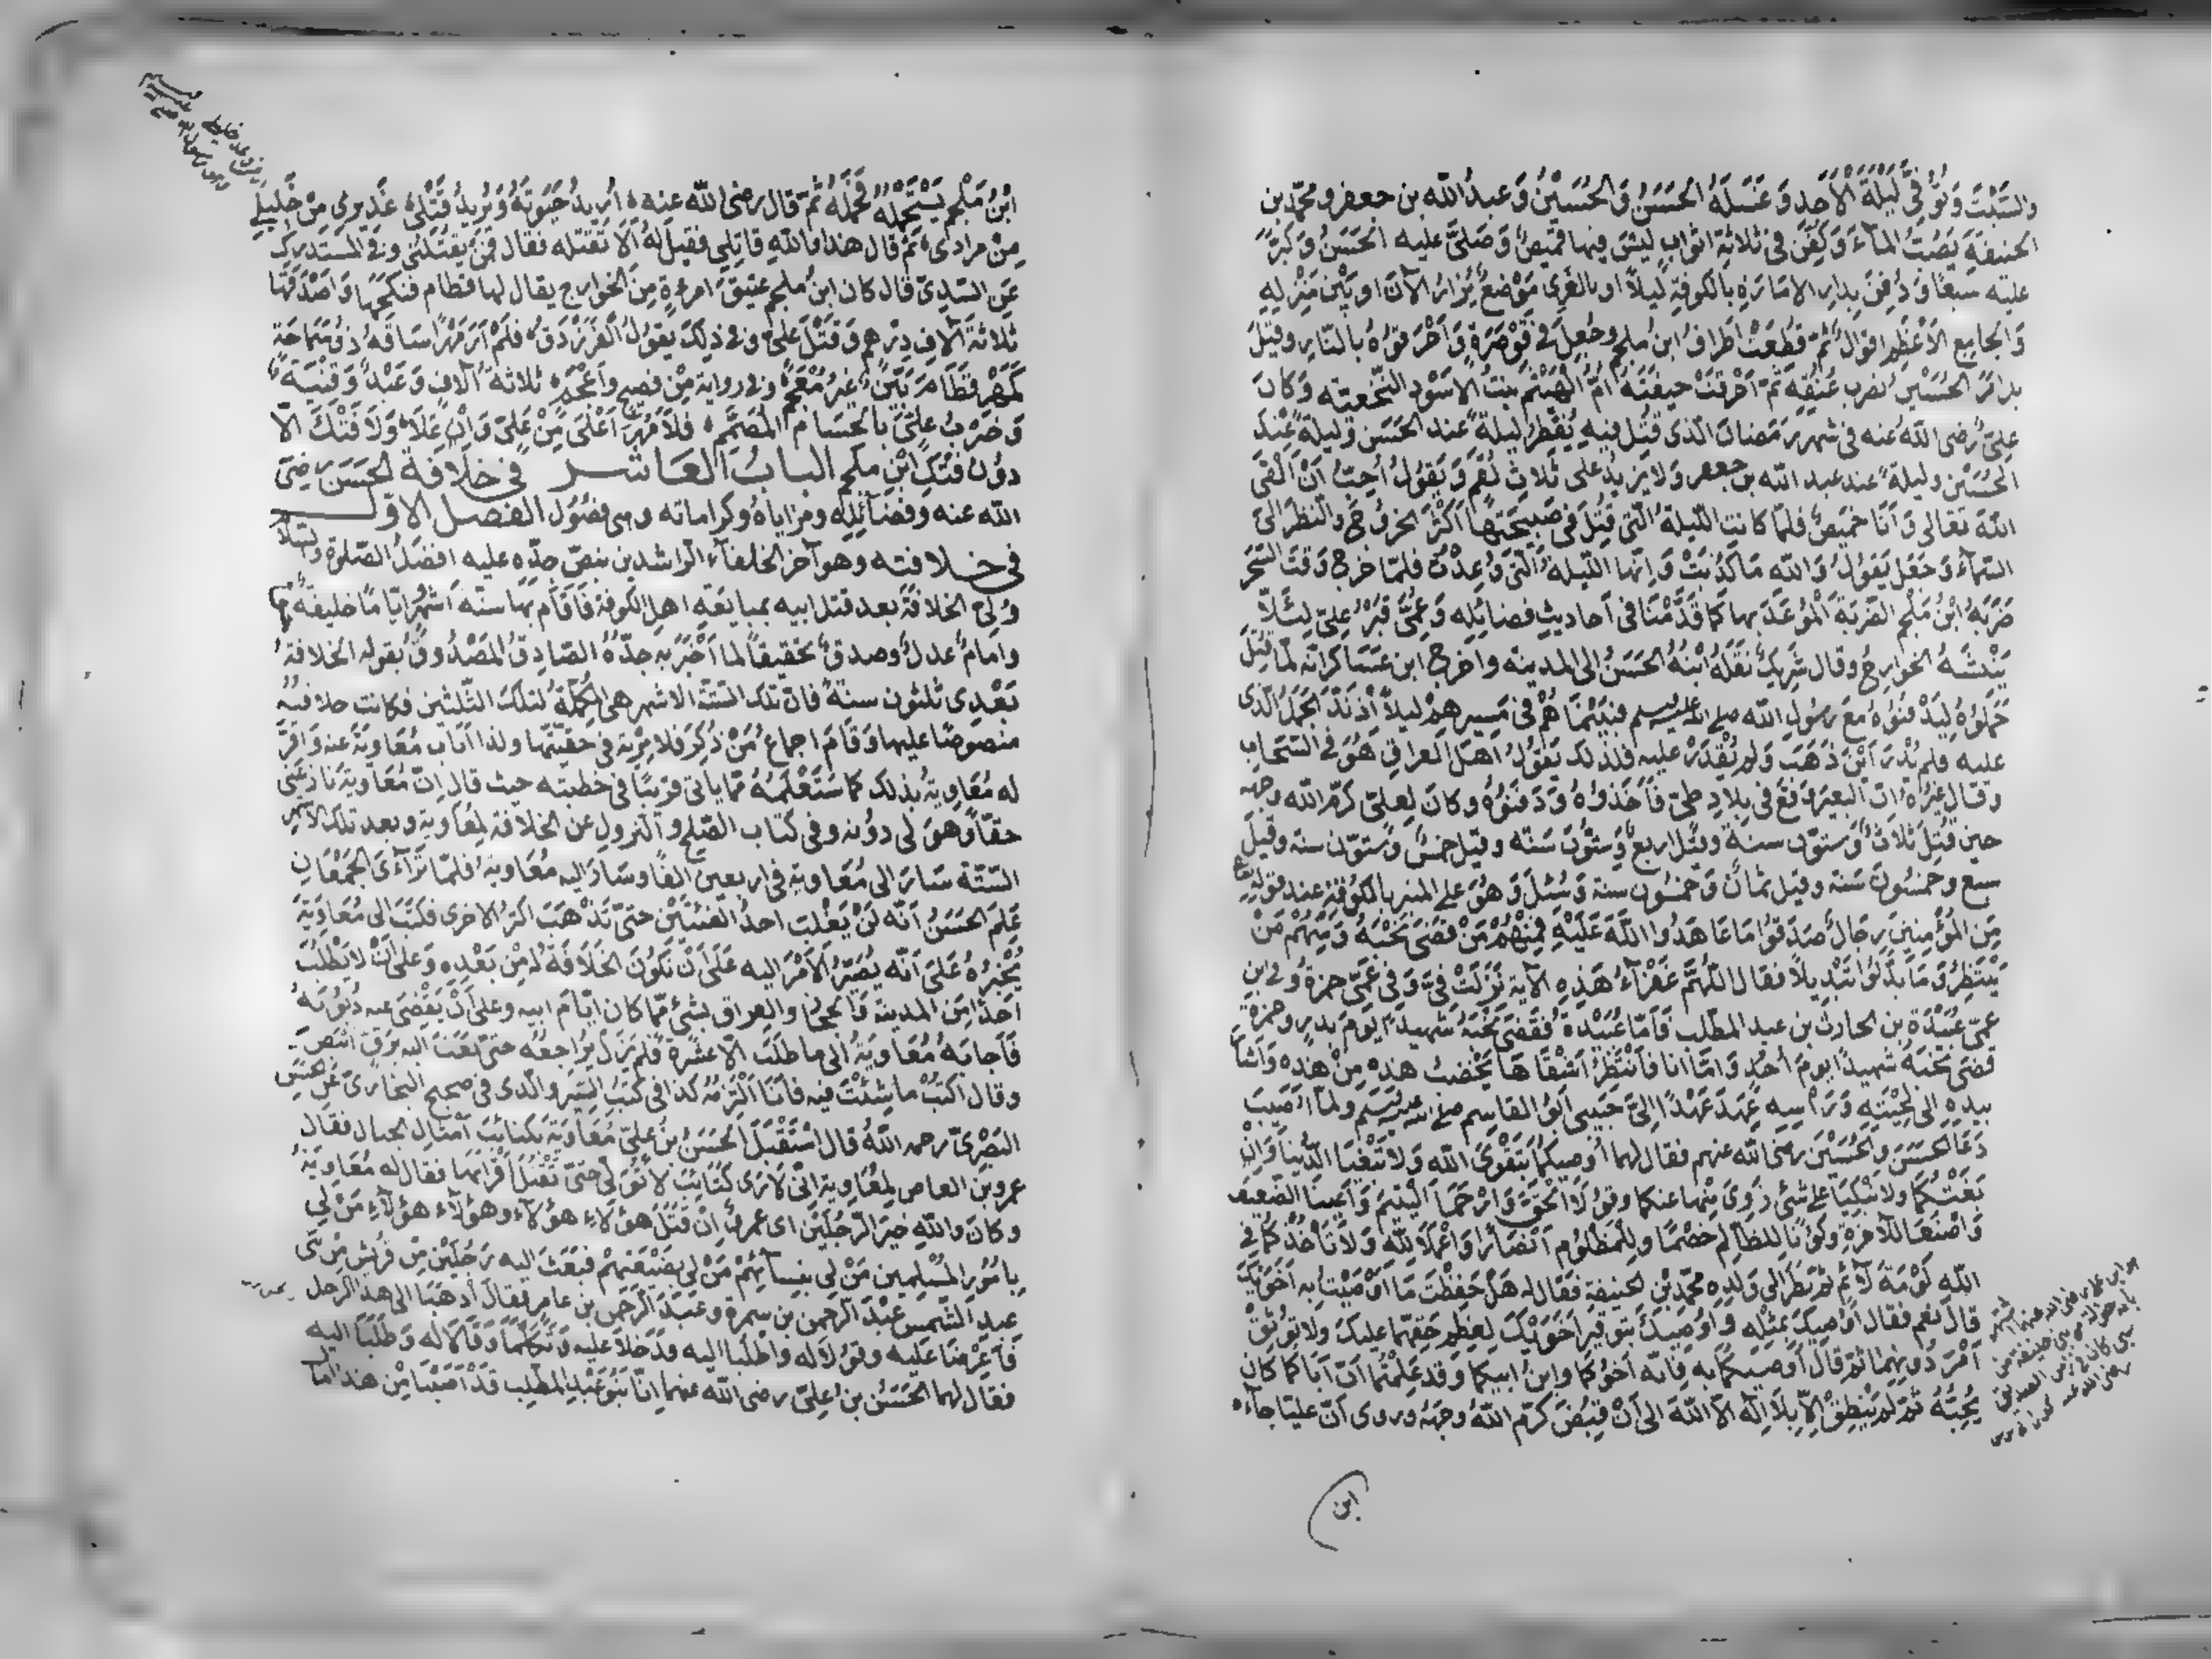 والسبت وتوفي ليلة الأحد وغسله الحسن والحسين وعبد الله بن جعفر ومحمد بن
الحنيفة يصب الماء وكفن في ثلاثة اثواب ليس فيها قميص وصلى عليه الحسن وكبر
عليه سبعا ودفن بدار الامارة بالكوفة ليلا او بالغري موضع يزار الآن او بين منزله
والجامع الأعظم اقوال ثم قطعت اطراف ابن ملجم وجعل في قوصرة واحرقوه بالنار وقيل
بل امر الحسين بضرب عنقه ثم احرقت جيفته ام الهيثم بنت الاسود النخعية وكان
علي رضي الله عنه في شهر رمضان الذي قتل فيه يفطر ليلة عند الحسن وليلة عند
الحسين وليلة عند عبد الله بن جعفر ولا يزيد على ثلاث لقم ويقول أحب أن ألقى
الله تعالى وأنا خميص فلما كانت الليلة التي قتل في صبيحتها أكثر الخروج والنظر الى
السماء وجعل يقول والله ما كذبت وانها الليلة التي وعدت فلما خرج وقت السحر
ضربه ابن ملجم الضربة الموعد بها كما قدمنا في أحاديث فضائله وعمي قبر علي لئلا
ينبشه الخوارج وقال شريك نقله ابنه الحسن الى المدينة واخرج ابن عساكر انه لما قتل
حملوه ليدفنوه مع رسول الله صلى الله عليه وسلم فبينما هم في مسيرهم ليلا اذ ند الجمل الذي
عليه فلم يدر أين ذهب ولم يقدر عليه فلذلك يقول أهل العراق هو في السحاب
وقال غيره ان البعير وقع في بلاد طي فأخذوه ودفنوه وكان لعلي كرم الله وجهه
حين قتل ثلاث وستون سنة وقيل اربع وستون سنة وقيل خمس وستون سنة وقيل
سبع وخمسون سنة وقيل ثمان وخمسون سنة وسئل وهو على المنبر بالكوفة عند قوله
من المؤمنين رجال صدقوا ما عاهدوا الله عليه فمنهم من قضى نحبه ومنهم من
ينتظر وما بدلوا تبديلا فقال اللهم غفرا هذه الآية نزلت في وفي عمي حمزة وفي ابن
عمي عبيدة بن الحارث بن عبد المطلب فأما عبيدة فقضى نحبه شهيدا يوم بدر وحمزة
قضى نحبه شهيدا يوم أحد وأما أنا فأنتظر أشقاها يخضب هذه من هذه وأشار
بيده إلى لحيته ورأسه عهد عهدا الي حبيبي أبو القاسم صلى الله عليه وسلم ولما أصيب
دعا الحسن والحسين رضي الله عنهم فقال لهما أوصيكما بتقوى الله ولا تبغيا الدنيا وإن
بغتكما ولا تبكيا على شيء زوي منها عنكما وقولا الحق وارحما اليتيم وأعينا الضعيف
واصنعا للآخرة وكونا للظالم خصما وللمظلوم أنصارا واعملا لله ولا تأخذكما في
الله لومة لائم ثم نظر الى ولده محمد بن الحنيفة فقال له هل حفظت ما أوصيت به أخويك
قال نعم فقال أوصيك بمثله وأوصيك بتوقير أخويك لعظم حقهما عليك ولا توثق
أمرا دونهما ثم قال أوصيكما به فانه أخوكما وابن أبيكما وقد علمتما ان أباكما كان
يحبه ثم لم ينطق الا بلا اله الا الله الى أن قبض كرم الله وجهه وروي أن عليا جاءه
ابن
ابن ملجم يستحمله فحمله ثم قال رضي الله عنه أريد حبوته ويريد قتلي عذيري من خليلي
من مرادى ثم قال هذا والله قاتلي فقيل له ألا تقتله فقال فمن يقتلني وفي المستدرك
عن السدي قال كان ابن ملجم عشق امرءة من الخوارج يقال لها قطام فنكحها وأصدقها
ثلاثة آلاف درهم وقتل علي وفي ذلك يقول الفرزدق فلم أر مهرا ساقه ذو سماحة
كمهر قطام بين غير معجم وفي رواية من فصيح وأعجم ثلاثة آلاف وعبد وقينة
وضرب علي بالحسام المصمم فلا مهر أعلى من علي وإن علا ولا فتك الا
دون فتك ابن ملجم الباب العاشر في خلافة الحسن رضي
الله عنه وفضائله ومزاياه وكراماته وفي فصول الفصل الاول
في خلافته وهو آخر الخلفاء الراشدين بنص جده عليه افضل الصلوة والسلام
ولي الخلافة بعد قتل ابيه بمبايعة اهل الكوفة فأقام بها ستة أشهر وايّاما خليفة حق
وامام عدل وصدق تحقيقا لما أخبر به جده الصادق المصدوق بقوله الخلافة
بعدي ثلثون سنة فان تلك الستة الاشهر هي المكملة لتلك الثلثين فكانت خلافته
منصوصا عليها وقام اجماع من ذكر فلا مرية في حقيتها ولذا اناب معاوية عنه وأقر
له معاوية بذلك كما ستعلمه مما يأتي قريبا في خطبته حيث قال ان معاوية نازعني
حقا وهو لي دونه وفي كتاب الصلح والنزول عن الخلافة لمعاوية وبعد تلك الاشهر
الستة سار الى معاوية في اربعين الفا وسار اليه معاوية فلما تراءى الجمعان
علم الحسن أنه لن يغلب احد الفئتين حتى تذهب اكثر الاخرى فكتب الى معاوية
يخبره على أنه يصير الأمر اليه على أن تكون الخلافة له من بعده وعلى ان لا يطلب
أحدا من المدينة والحجاز والعراق بشيء مما كان ايام ابيه وعلى أن يقضي عنه ديونه
فأجابه معاوية الى ما طلب الا عشرة فلم يزل يراجعه حتى بعث اليه برق ابيض
وقال اكتب ما شئت فيه فانا التزمه كذا في كتب السير والذي في صحيح البخاري عن الحسن
البصري رحمه الله قال استقبل الحسن بن علي معاوية بكتائب أمثال الجبال فقال
عمرو بن العاص لمعاوية اني لأرى كتائب لا تولي حتى تقتل أقرانها فقال له معاوية
وكان والله خير الرجلين اى عمرو ان قتل هؤلاء هؤلاء وهؤلاء هؤلاء من لي
بامور المسلمين من لي بنسائهم من لي بضيعتهم فبعث اليه رجلين من قريش من بني
عبد الشمس عبد الرحمن بن سمرة وعبد الرحمن بن عامر فقال اذهبا الى هذا الرجل
فاعرضا عليه وقولا له واطلبا اليه فدخلا عليه وتكلما وقالا له وطلبا اليه
فقال لهما الحسن بن علي رضي الله عنهما انا بنو عبد المطلب قد أصبنا من هذا المال